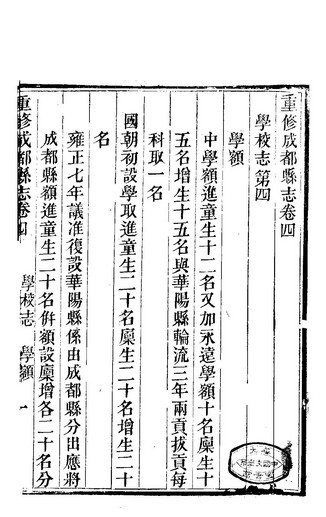 重修成都縣志卷四
學校志第四
學額
中學額進童生十二名又加永遠學額十名廩生十
五名增生十五名與華陽縣輪流三年兩貢拔貢每
科取一名
國朝初設學取進童生二十名廩生二十名增生二十
名
雍正七年議准復設華陽縣係由成都縣分出應將
成都縣額進童生二十名併額設廩增各二十名分
重修成都縣志卷四
學校志 學額
一